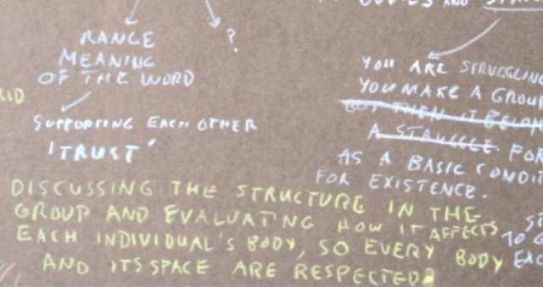 AND
RANGE
MEANING
OF THE WORD
?
SUPPORTING EACH OTHER
'TRUST'
YOU ARE STRUGGLING
YOU MAKE A GROUP
BUT THEN IT
A STRUGGLE FOR
AS A BASIC
FOR EXISTENCE.
DISCUSSING THE STRUCTURE IN THE
GROUP AND EVALUATING HOW IT AFFECTS
EACH INDIVIDUAL'S BODY, SO EVERY BODY
AND ITS SPACE ARE RESPECTED.